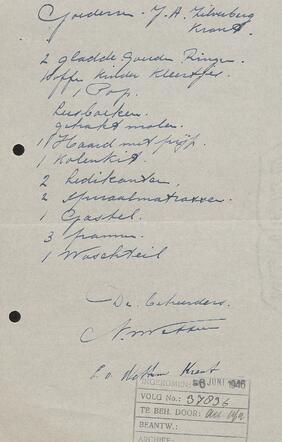 Goederen J. A. Zilverberg
Krant.
2 gladde Gouden Ringen.
Koffer Kinder Kleertjes
1 Pop.
Leesboeken.
gehakt molen.
1 Haard met pijp.
1 Kolenkit.
2 Ledikanten,
2 Spiraalmatrassen
1 Gasstel.
3 pannen.
1 Waschteil
De beheerders.
INGEKOMEN: 6 JUNI 1946
VOLG No.: 37896
TE BEH. DOOR:
BEANTW.:
ARCHIEF: